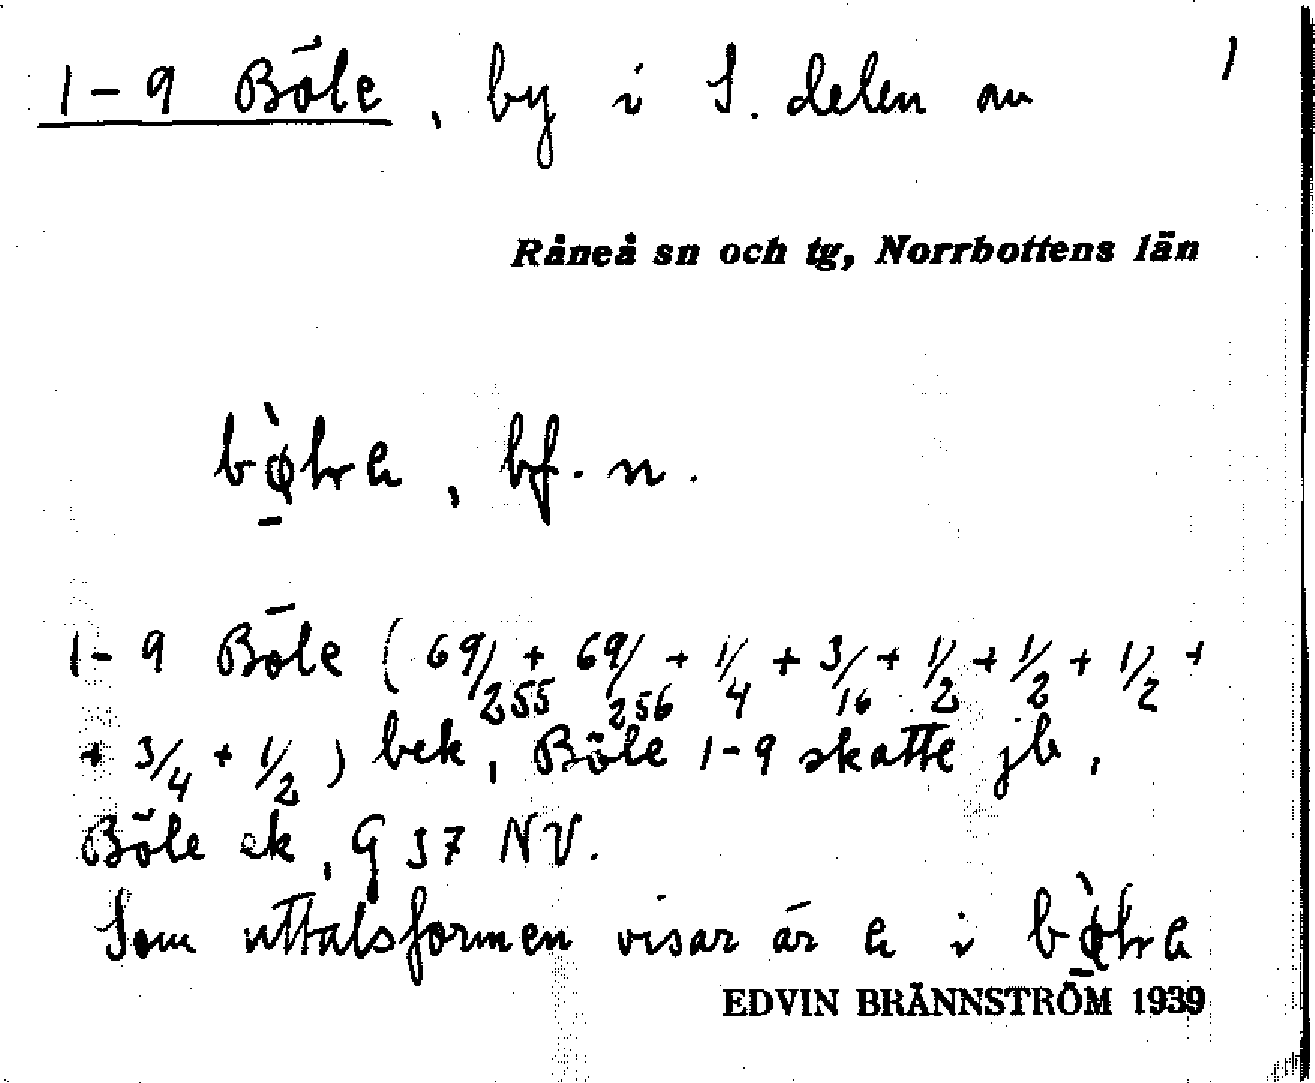 1-9 Böle, by i S. delen av 1
Råneå sn och tg, Norrbottens län
bf. n.
1-9 Böle (69/255 + 69/256 + 1/4 + 3/16 + 1/2 + 1/2 + 1/2 +
+ 3/4 + 1/2) bek, Böle 1-9 skatte jb,
Böle ek, G 37 NV.
Som uttalsformen visar är a i
EDVIN BRÄNNSTRÖM 1939